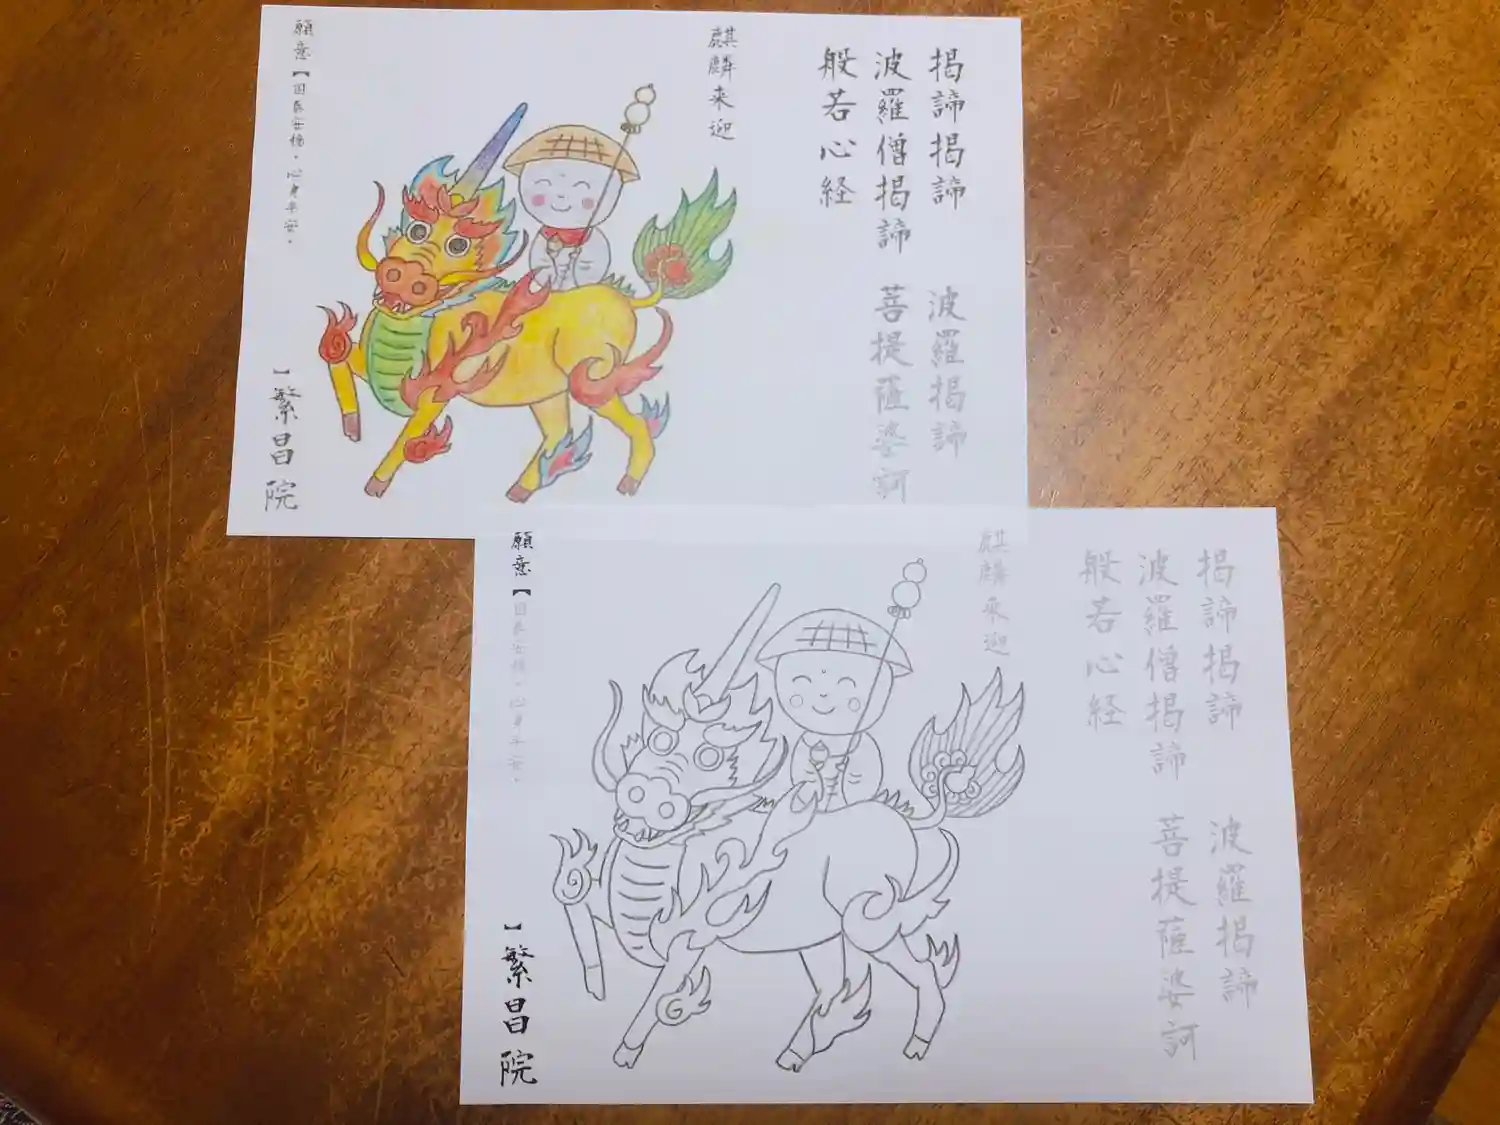 揭諦揭諦　波羅揭諦
波羅僧揭諦　菩提薩婆訶
般若心経
麒麟来迎
願意【国泰安穏。心身平安。】繁昌院
揭諦揭諦　波羅揭諦
波羅僧揭諦　菩提薩婆訶
般若心経
麒麟来迎
願意【国泰安穏。心身平安。】繁昌院